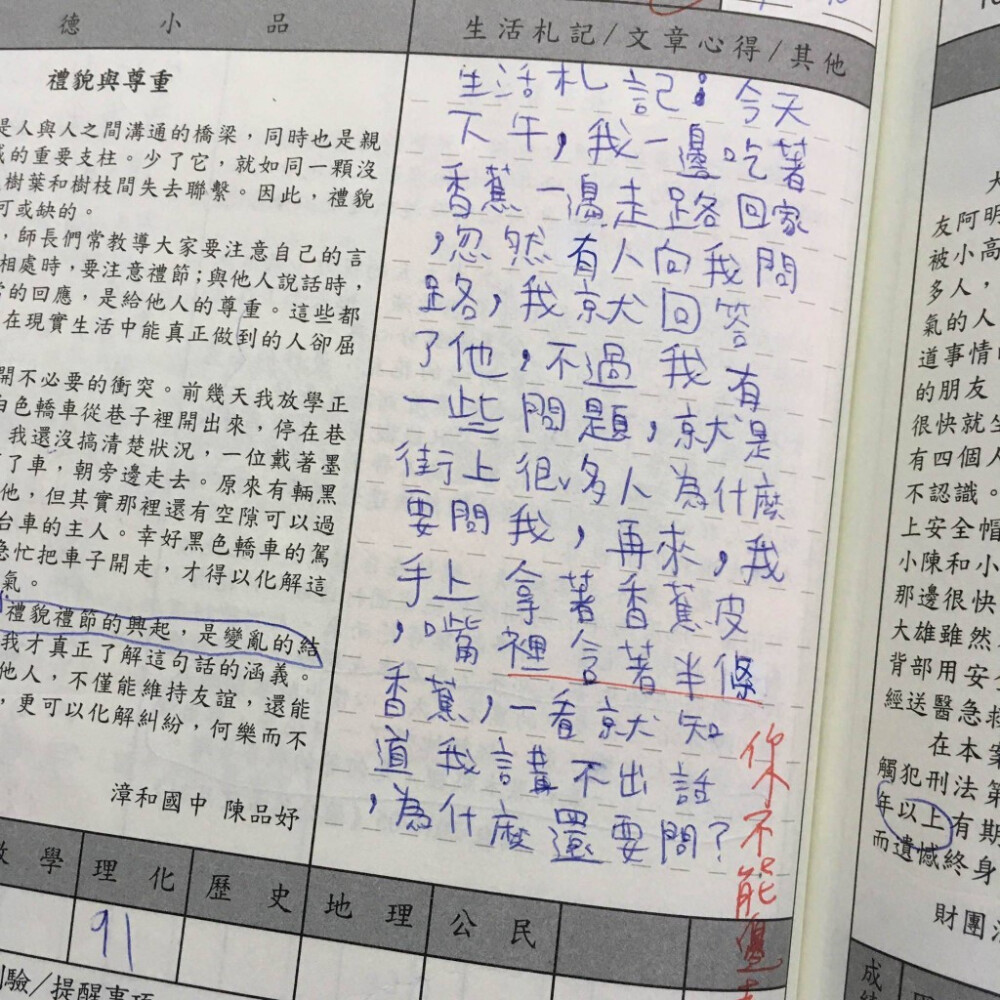 德小品
禮貌與尊重
是人與人之間溝通的橋梁，同時也是親
的重要支柱。少了它，就如同一顆沒
樹葉和樹枝間失去聯繫。因此，禮貌
可或缺的。
，師長們常教導大家要注意自己的言
相處時，要注意禮節；與他人說話時，
常的回應，是給他人的尊重。這些都
在現實生活中能真正做到的人卻屈
開不必要的衝突。前幾天我放學正
白色轎車從巷子裡開出來，停在巷
我還沒搞清楚狀況，一位戴著墨
了車，朝旁邊走去。原來有輛黑
他，但其實那裡還有空隙可以過
台車的主人。幸好黑色轎車的駕
急忙把車子開走，才得以化解這
氣。
禮貌禮節的興起，是變亂的結
我才真正了解這句話的涵義。
他人，不僅能維持友誼，還能
，更可以化解糾紛，何樂而不
漳和國中 陳品妤
生活札記/文章心得/其他
生活札記：今天
下午，我一邊吃著
香蕉一邊走路回家
，忽然有人向我問
路，我就回答
了他，不過我有
一些問題，就是
街上很多人為什麼
要問我，再來，我
手上拿著香蕉皮
，嘴裡含著半條
香蕉，一看就知
道我講不出話
，為什麼還要問？
你不能邊
數學
理化
歷史
地理
公民
91
測驗/提醒事項
大
友阿明
被小高
多人，
氣的人
道事情
的朋友
很快就
有四個人
不認識。
上安全帽
小陳和小
那邊很快
大雄雖然
背部用安
經送醫急救
在本案
觸犯刑法第
年以上有期
而遺憾終身
財團
成